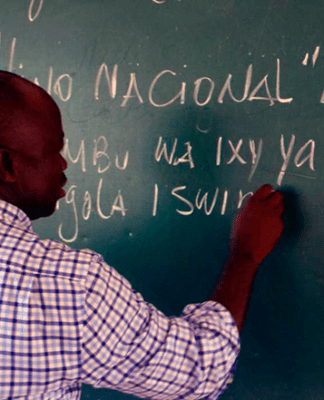 Hino NACIONAL "
MBU WA IXY YA
gola ISWI